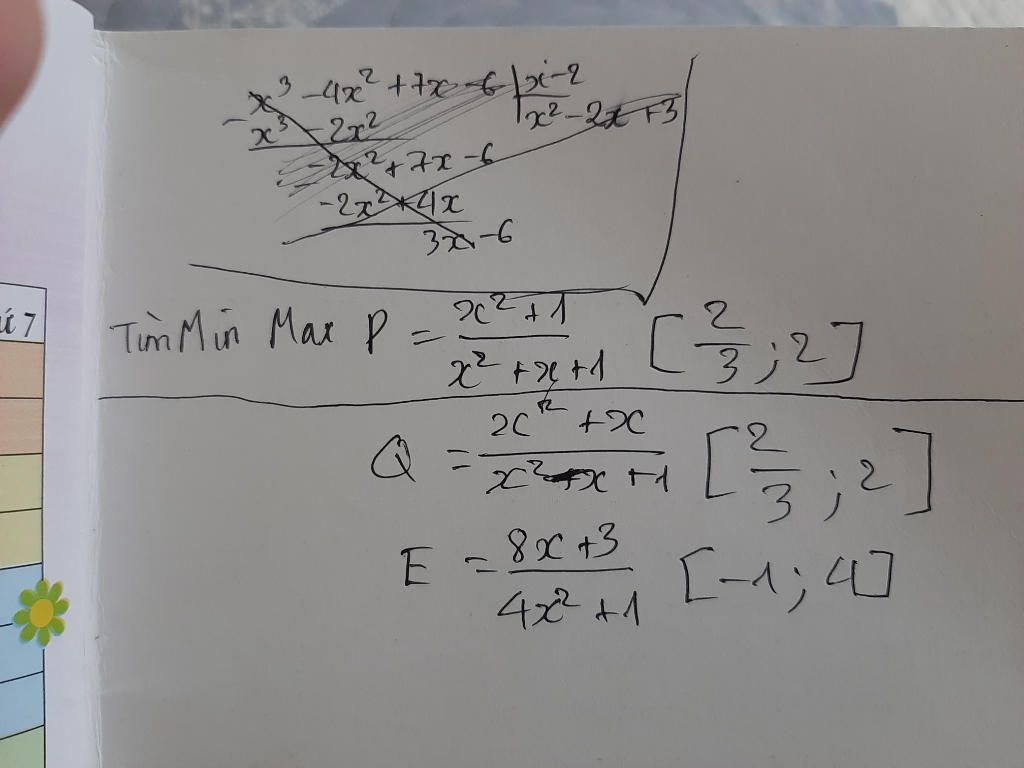 x³ - 4x² + 7x - 6 | x - 2
- x³ - 2x² | x² - 2x + 3
- 2x² + 7x - 6
- - 2x² + 4x
3x - 6
Tìm Min Max P = (x² + 1)/(x² + x + 1) [2/3 ; 2]
Q = (x² + x)/(x² + x + 1) [2/3 ; 2]
E = (8x + 3)/(4x² + 1) [-1 ; 4]
7